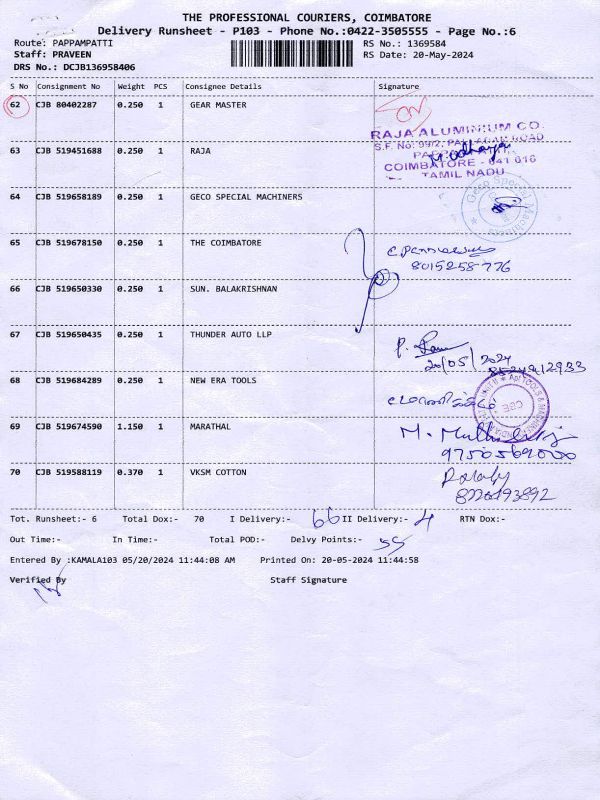 THE PROFESSIONAL COURIERS, COIMBATORE
Delivery Runsheet - P103 - Phone No.:0422-3505555 - Page No.:6
Route: PAPPAMPATTI
RS No.: 1369584
Staff: PRAVEEN
RS Date: 20-May-2024
DRS No.: DCJB136958406
S No Consignment No Weight PCS Consignee Details Signature
62 CJB 80402287 0.250 1 GEAR MASTER
RAJA ALUMINIUM CO.
S.F. No: 99/2, ROAD
63 CJB 519451688 0.250 1 RAJA
COIMBATORE - 641 016
TAMIL NADU
64 CJB 519658189 0.250 1 GECO SPECIAL MACHINERS
Geco Special
65 CJB 519678150 0.250 1 THE COIMBATORE
8015258776
66 CJB 519650330 0.250 1 SUN. BALAKRISHNAN
67 CJB 519650435 0.250 1 THUNDER AUTO LLP
20/05/2024
68 CJB 519684289 0.250 1 NEW ERA TOOLS
TOOLS &
CBE
69 CJB 519674590 1.150 1 MARATHAL
70 CJB 519588119 0.370 1 VKSM COTTON
8220193892
Tot. Runsheet:- 6 Total Dox:- 70 I Delivery:- 66 II Delivery:- 4 RTN Dox:-
Out Time:- In Time:- Total POD:- Delvy Points:- 55
Entered By :KAMALA103 05/20/2024 11:44:08 AM Printed On: 20-05-2024 11:44:58
Verified By Staff Signature